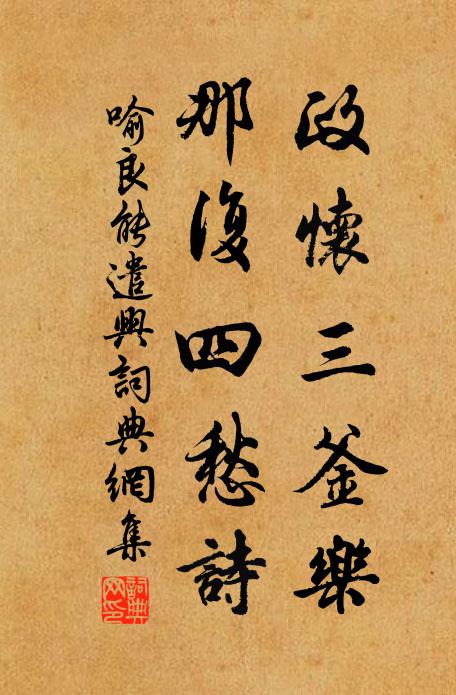 政懷三釜樂
那復四愁詩
喻良能遣興詞典網集
詞典網印